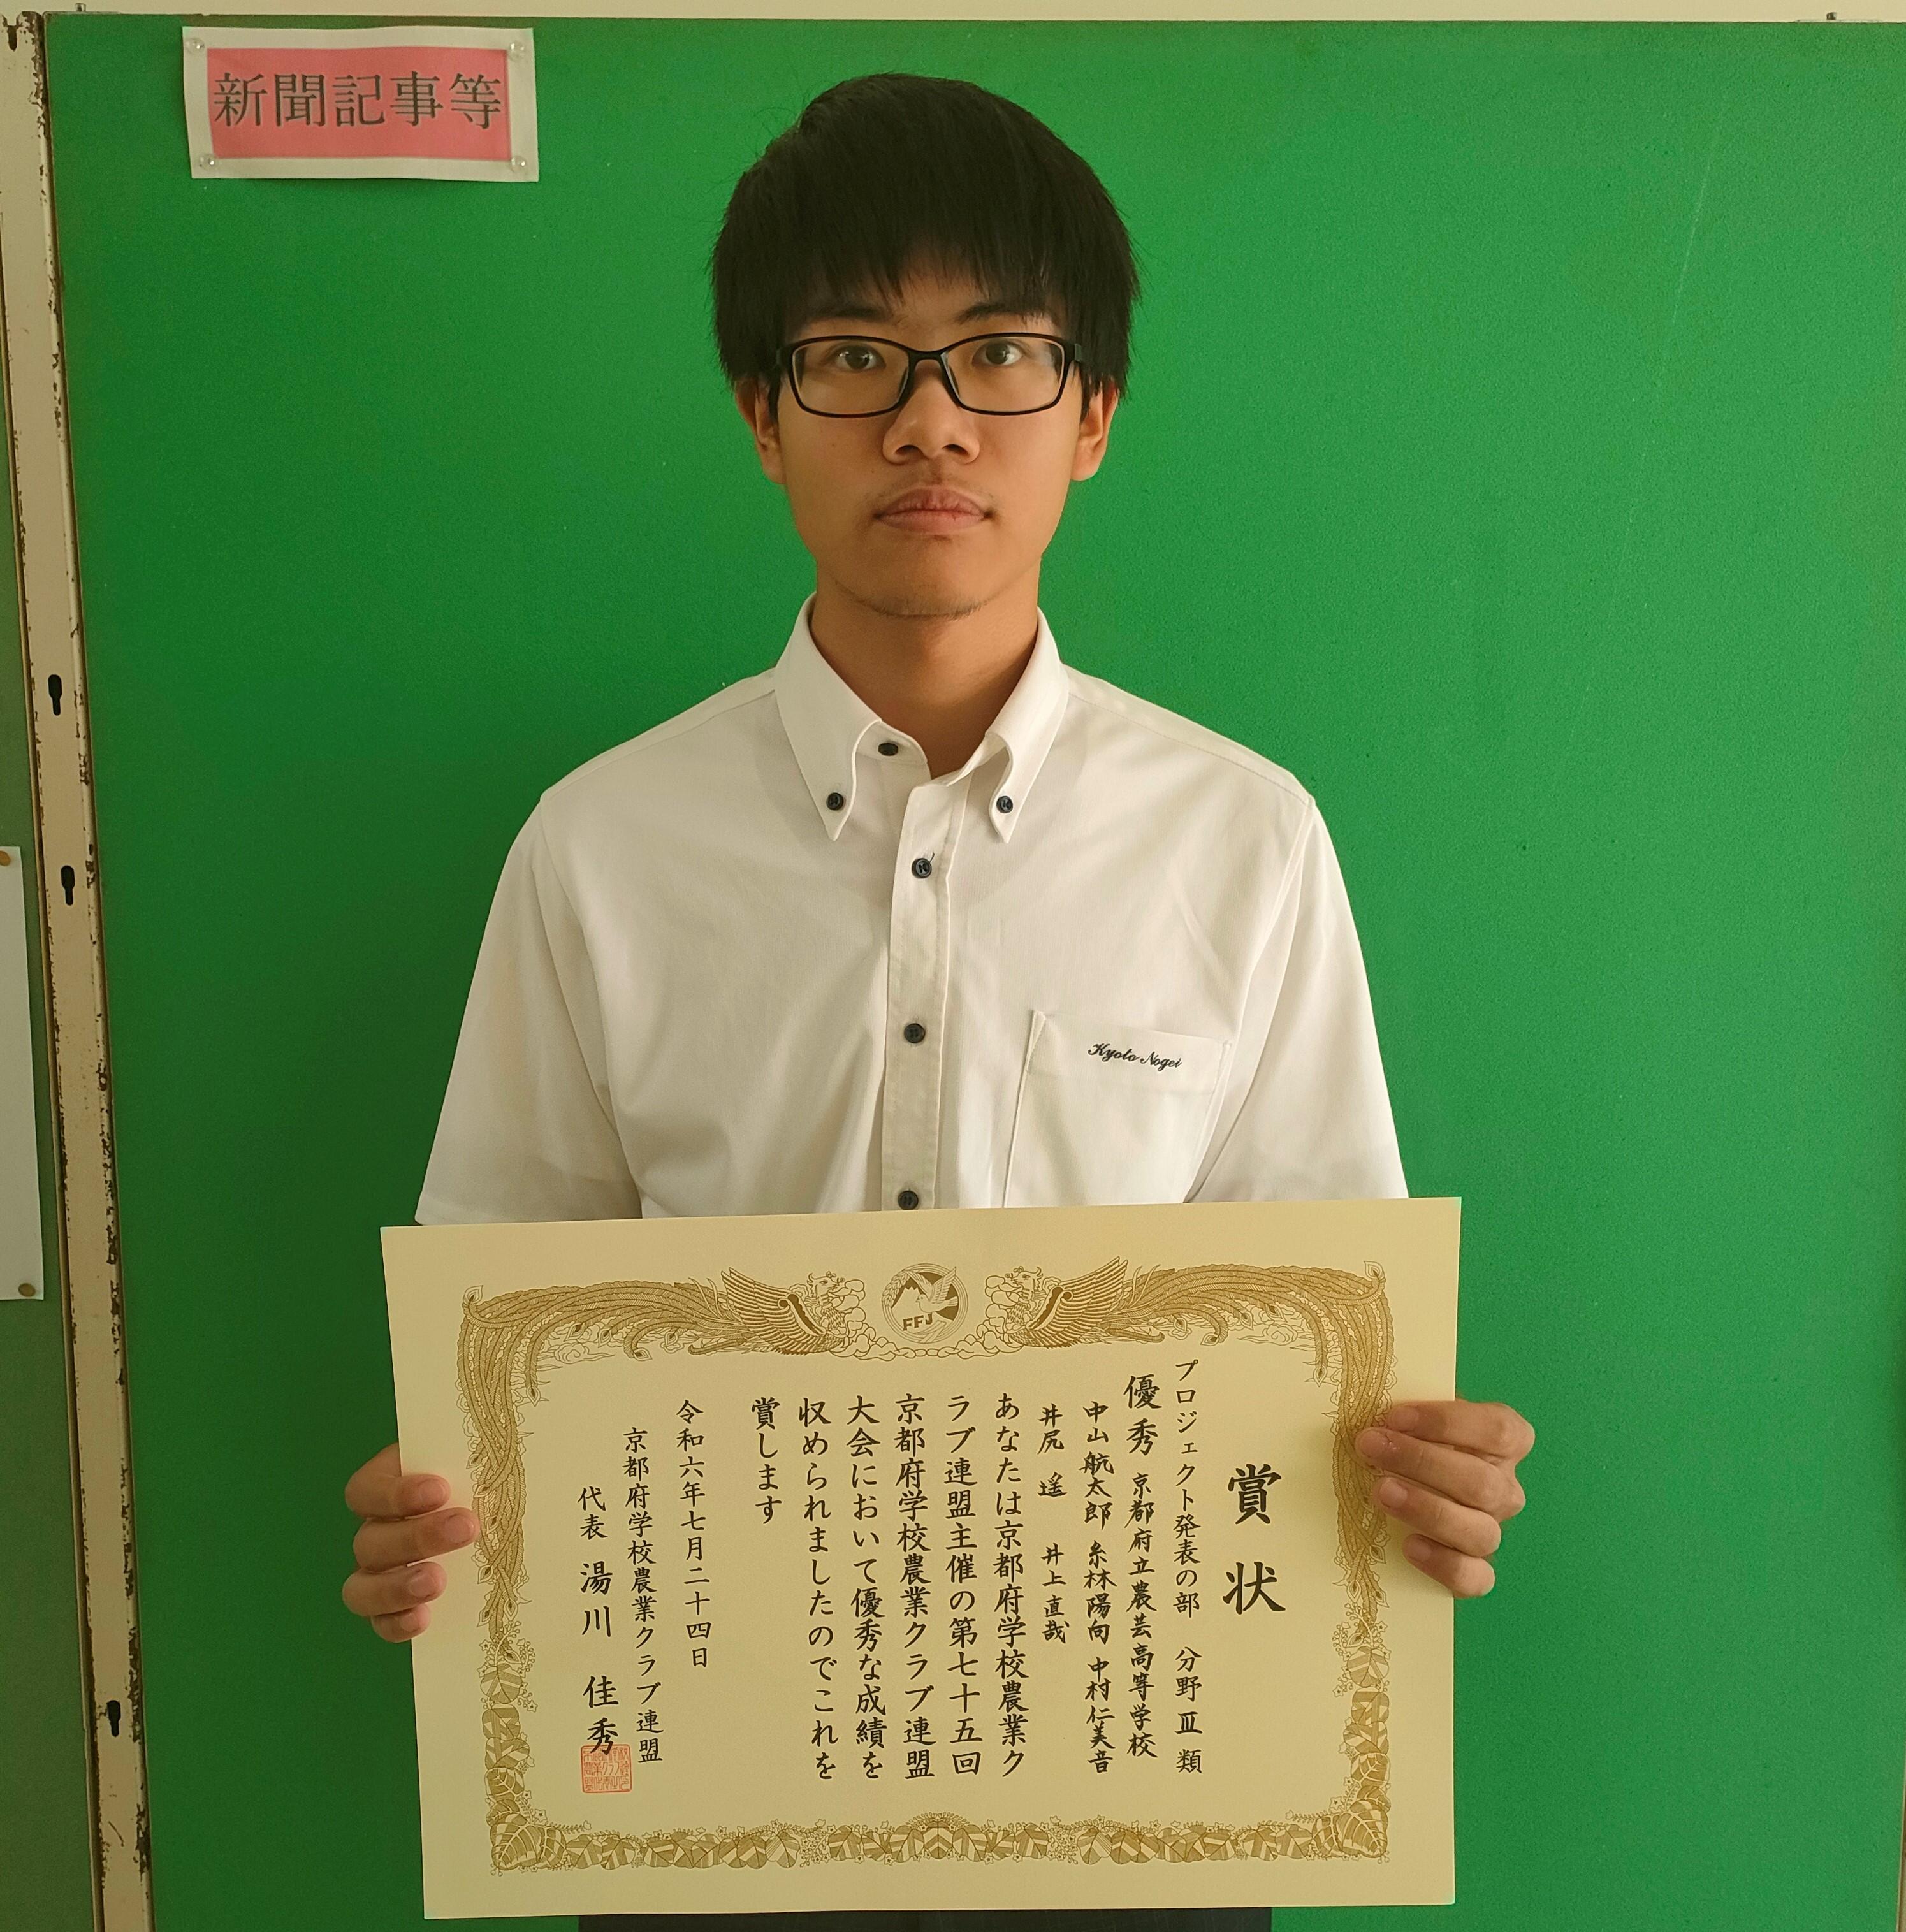 新聞記事等
Kyoto Nogei
FFJ
賞状
プロジェクト発表の部 分野Ⅲ類
優秀 京都府立農芸高等学校
中山航太郎 糸林陽向 中村仁美音
井尻遥 井上直哉
あなたは京都府学校農業ク
ラブ連盟主催の第七十五回
京都府学校農業クラブ連盟
大会において優秀な成績を
収められましたのでこれを
賞します
令和六年七月二十四日
京都府学校農業クラブ連盟
代表 湯川 佳秀